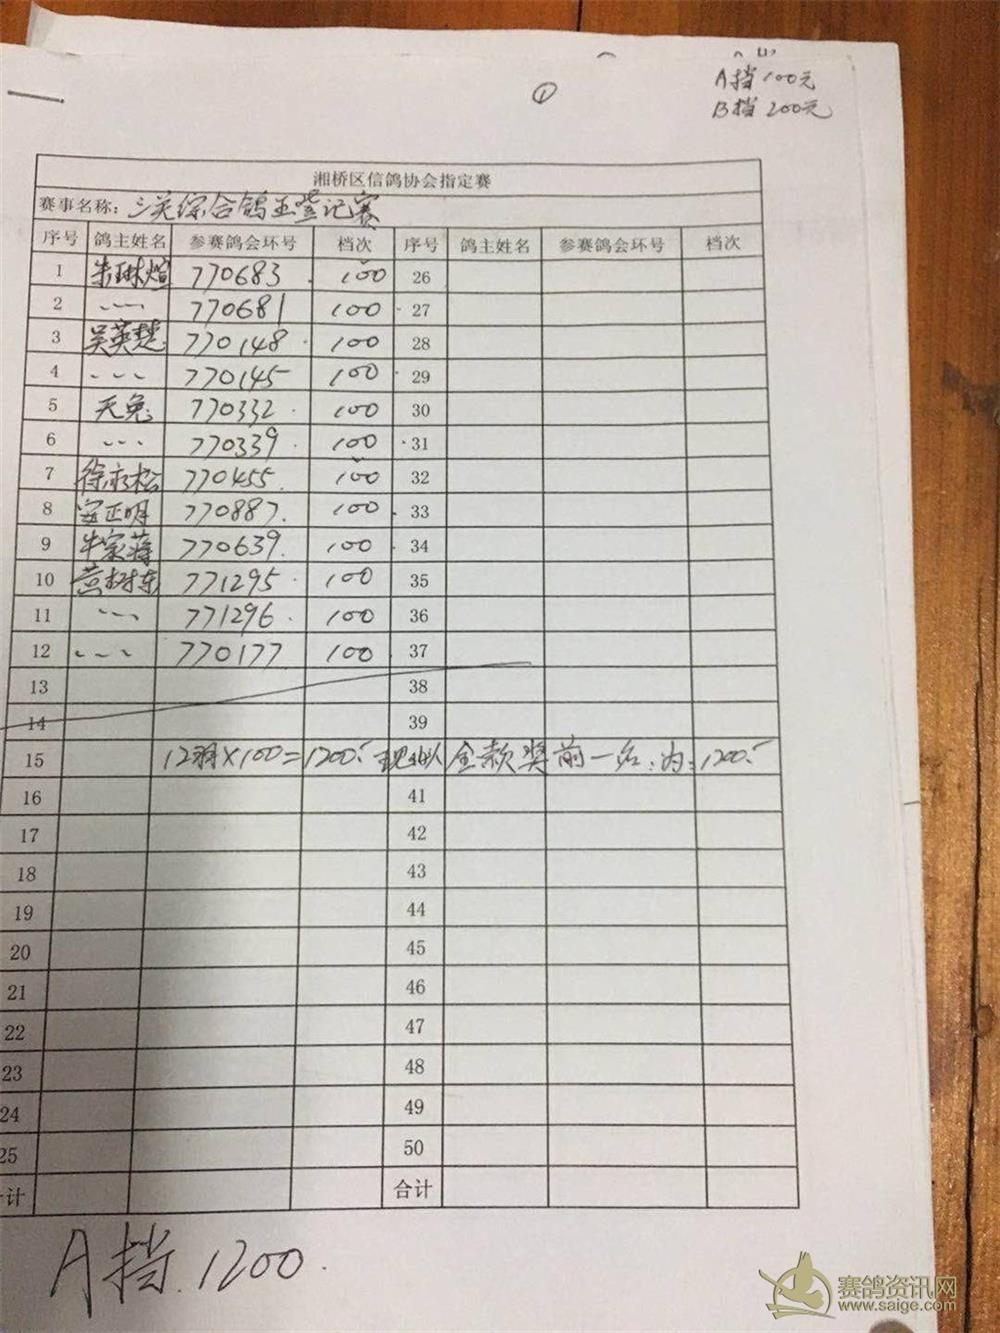 ①
A挡 100元
B挡 200元
湘桥区信鸽协会指定赛
赛事名称：三关综合鸽王登记赛
序号 鸽主姓名 参赛鸽会环号 档次 序号 鸽主姓名 参赛鸽会环号 档次
1 朱琳煊 770683 100 26
2 〃 770681 100 27
3 吴英楚 770148 100 28
4 〃 770145 100 29
5 天兔 770332 100 30
6 〃 770339 100 31
7 徐永松 770455 100 32
8 安正明 770887 100 33
9 770639 100 34
10 黄树东 771295 100 35
11 〃 771296 100 36
12 〃 770177 100 37
13 38
14 39
15 12羽×100=1200 现以全款奖前一名：为：1200
16 41
17 42
18 43
19 44
20 45
21 46
22 47
23 48
24 49
25 50
计 合计
A挡 1200
赛鸽资讯网
www.saige.com